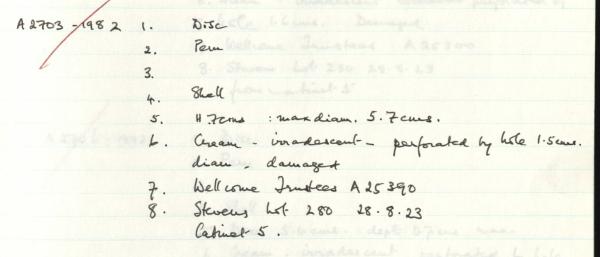 A2703-1982 1. Disc
2. Peru
3.
4. Shell
5. H 7cms : max diam. 5.7cms.
6. Cream - irradescent - perforated by hole 1.5cms.
diam - damaged
7. Wellcome Trustees A25390
8. Stevens Lot 280 28.8.23
Cabinet 5.